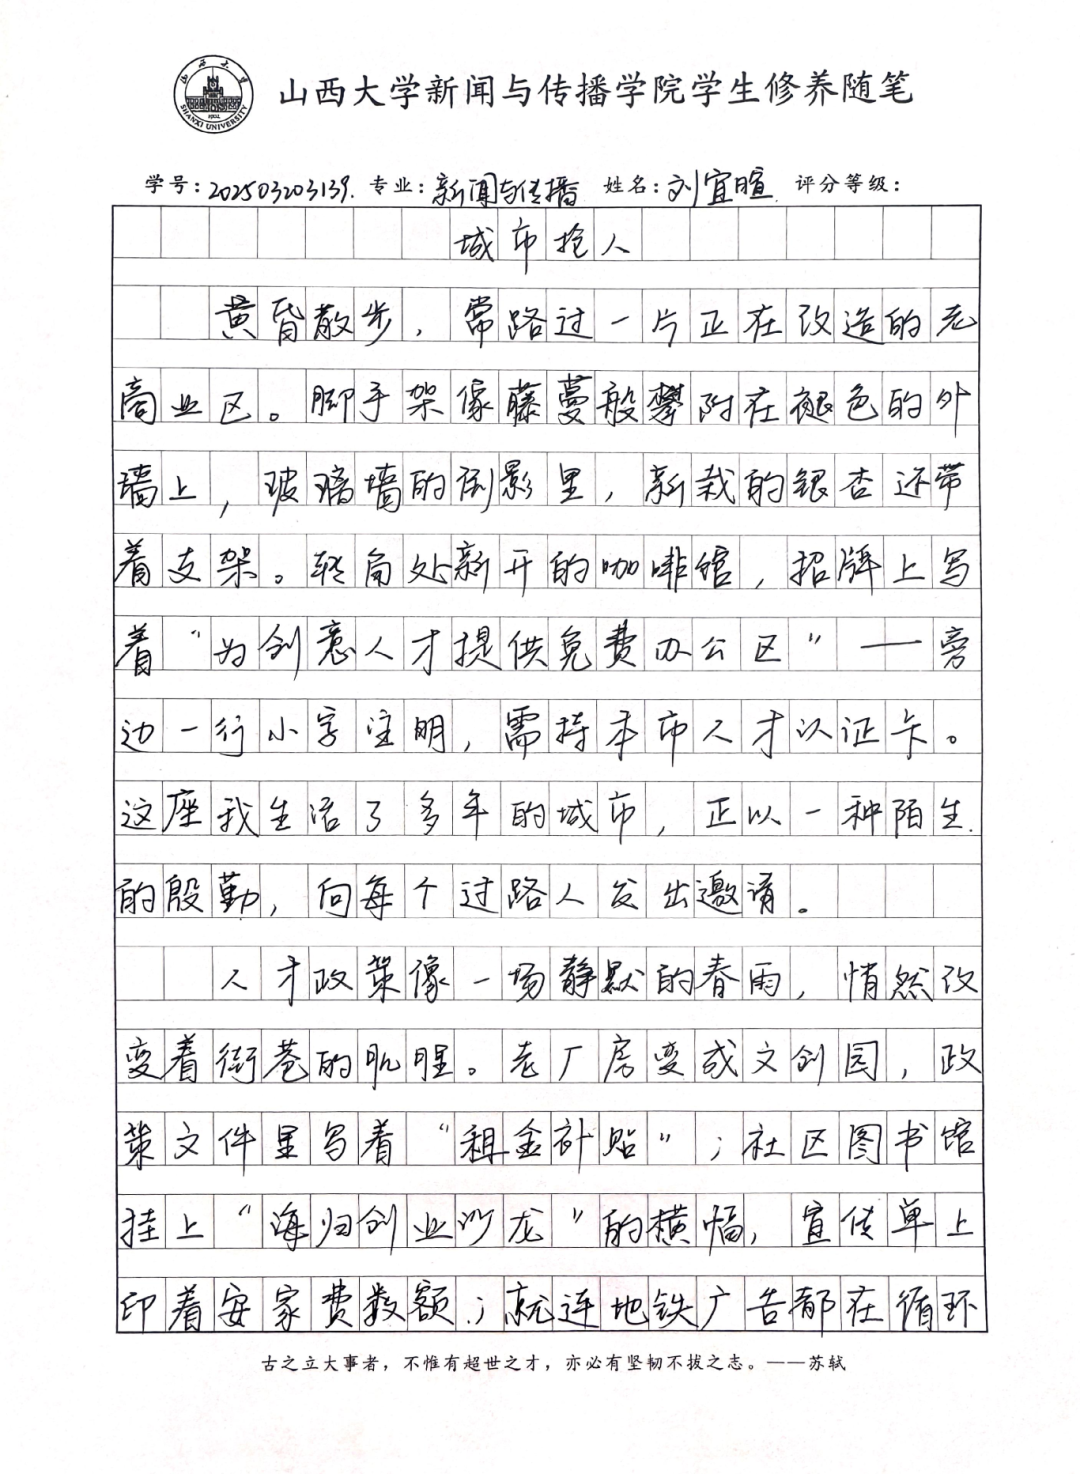 山西大学新闻与传播学院学生修养随笔
学号:202503203139. 专业:新闻与传播 姓名:刘宜暄 评分等级:
城市抢人
黄昏散步,常路过一片正在改造的老
商业区。脚手架像藤蔓般攀附在褪色的外
墙上,玻璃墙的倒影里,新栽的银杏还带
着支架。转角处新开的咖啡馆,招牌上写
着“为创意人才提供免费办公区”——旁
边一行小字注明,需持本市人才认证卡。
这座我生活了多年的城市,正以一种陌生
的殷勤,向每个过路人发出邀请。
人才政策像一场静默的春雨,悄然改
变着街巷的肌理。老厂房变成文创园,政
策文件里写着“租金补贴”;社区图书馆
挂上“海归创业沙龙”的横幅,宣传单上
印着安家费数额;就连地铁广告都在循环
古之立大事者,不惟有超世之才,亦必有坚韧不拔之志。——苏轼